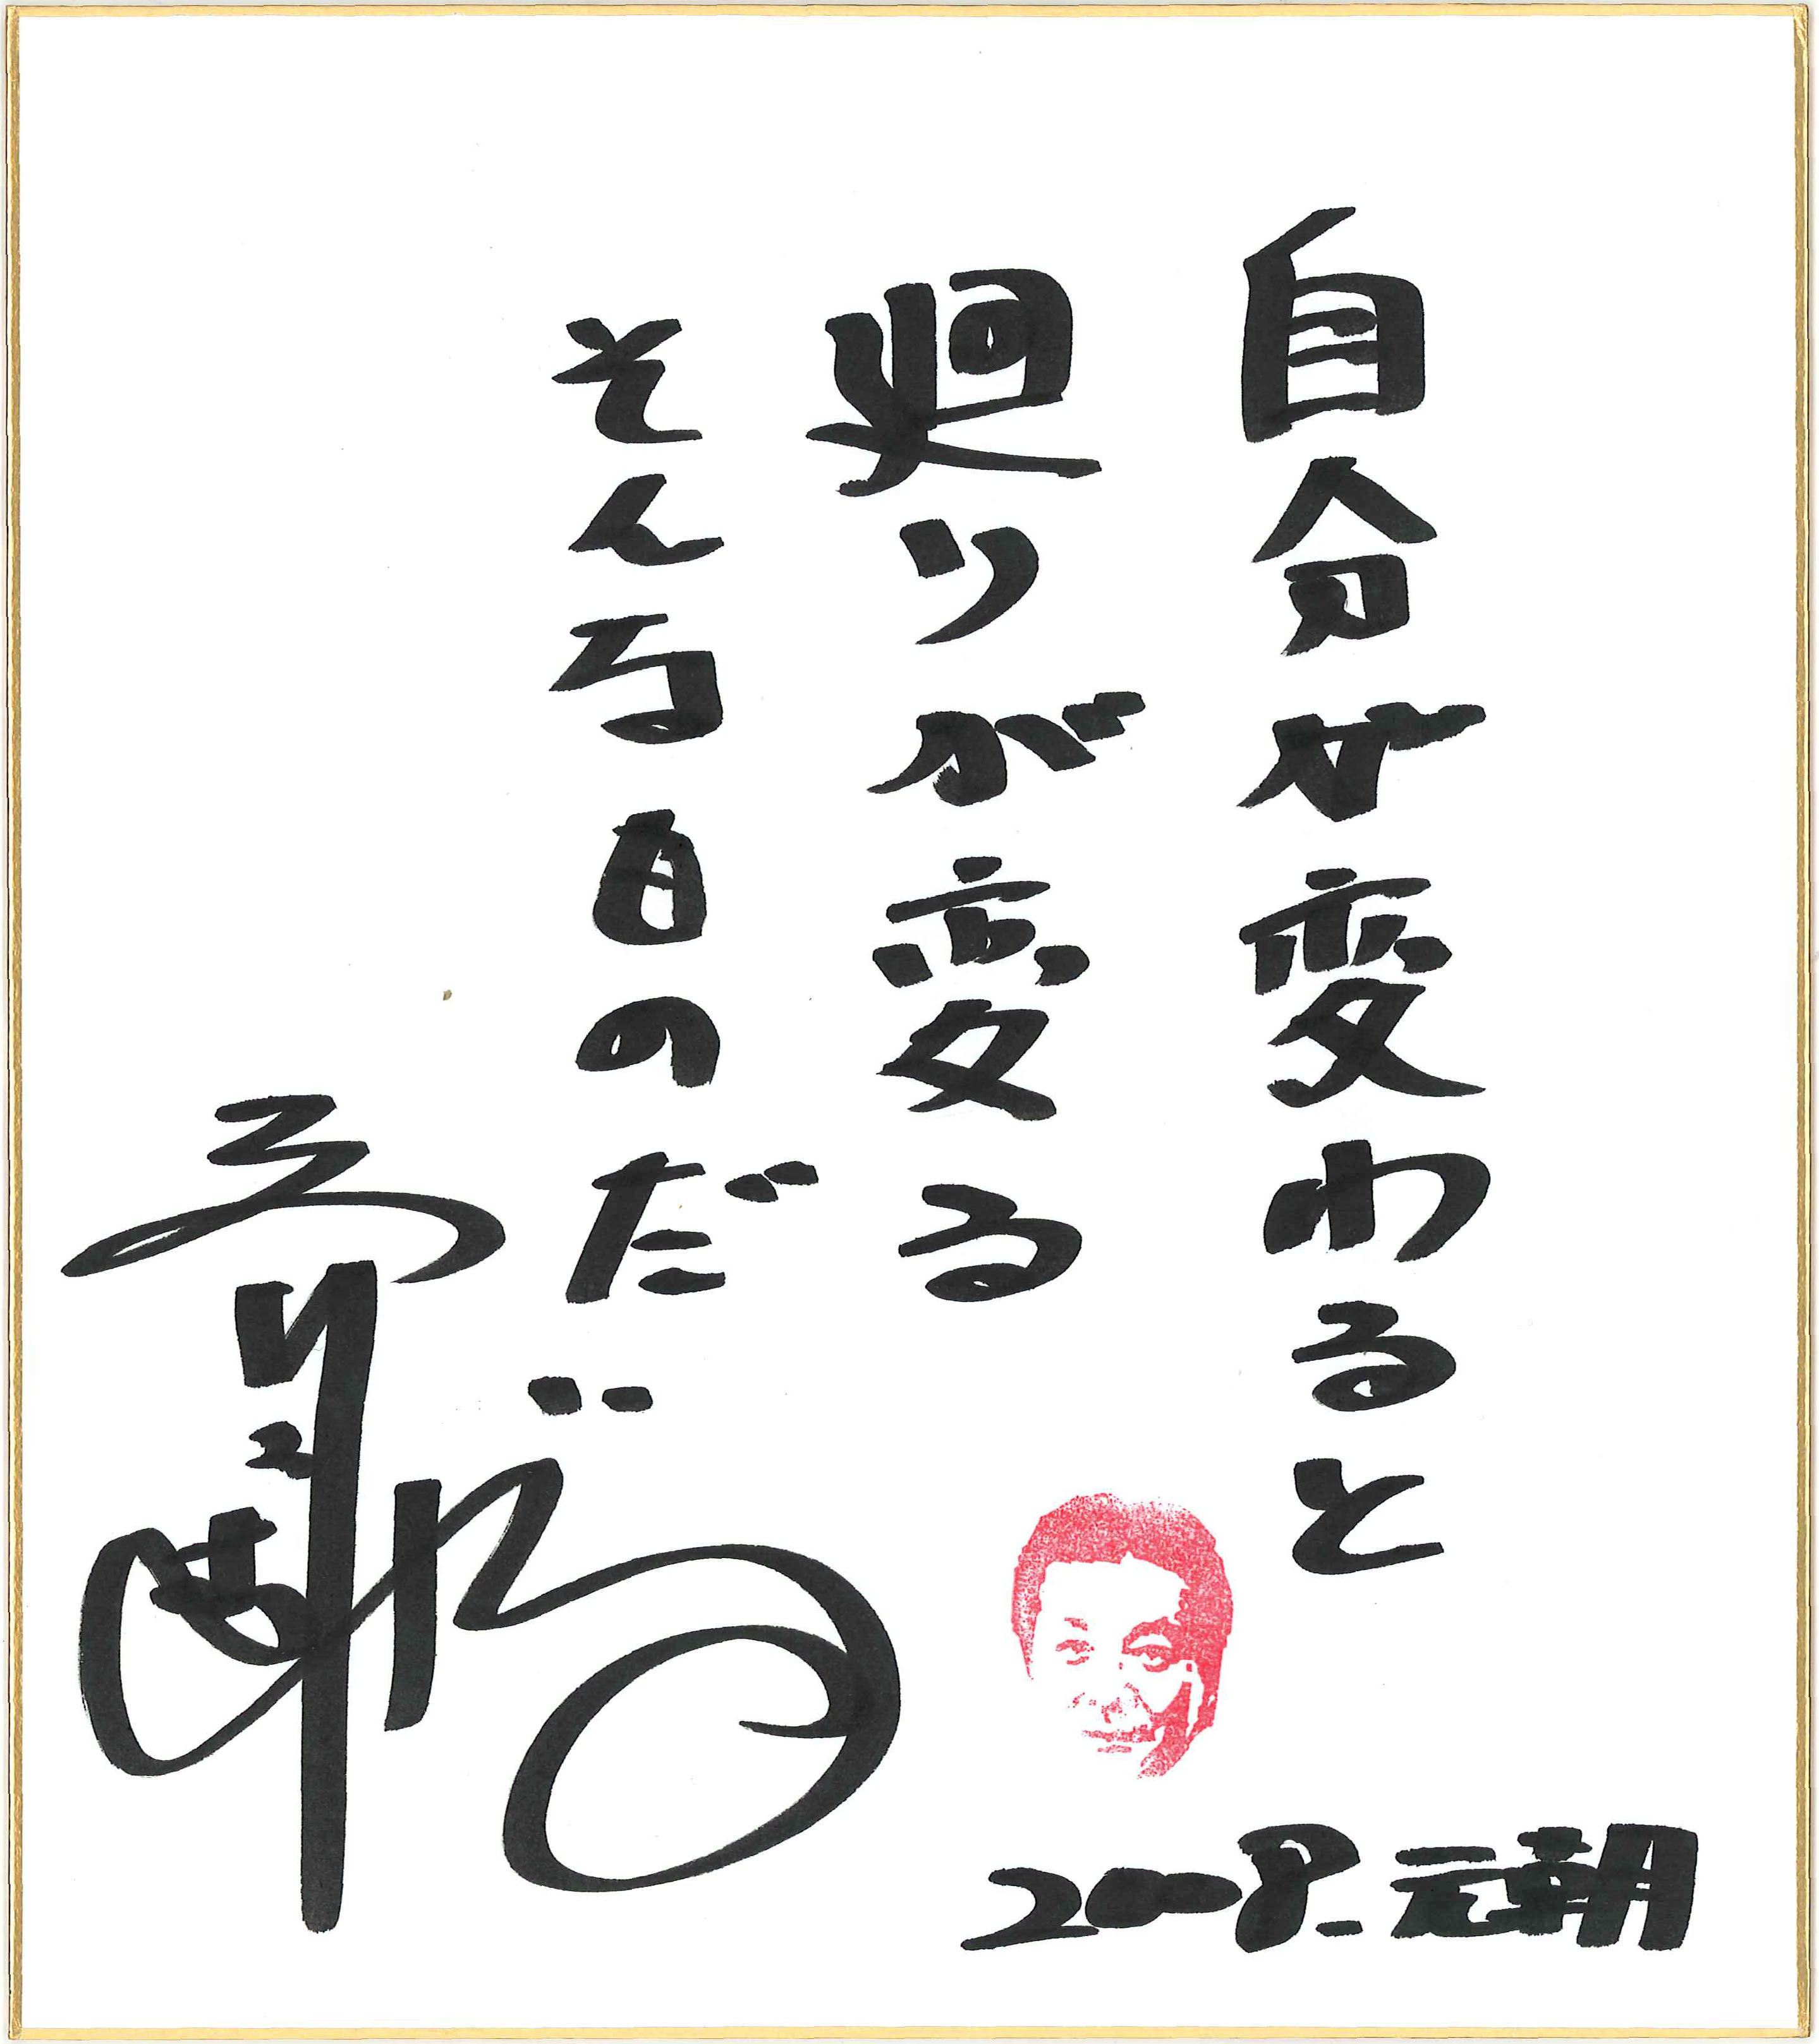 自分が変わると
廻りが変る
そんな日のだ‥
2008.元朝